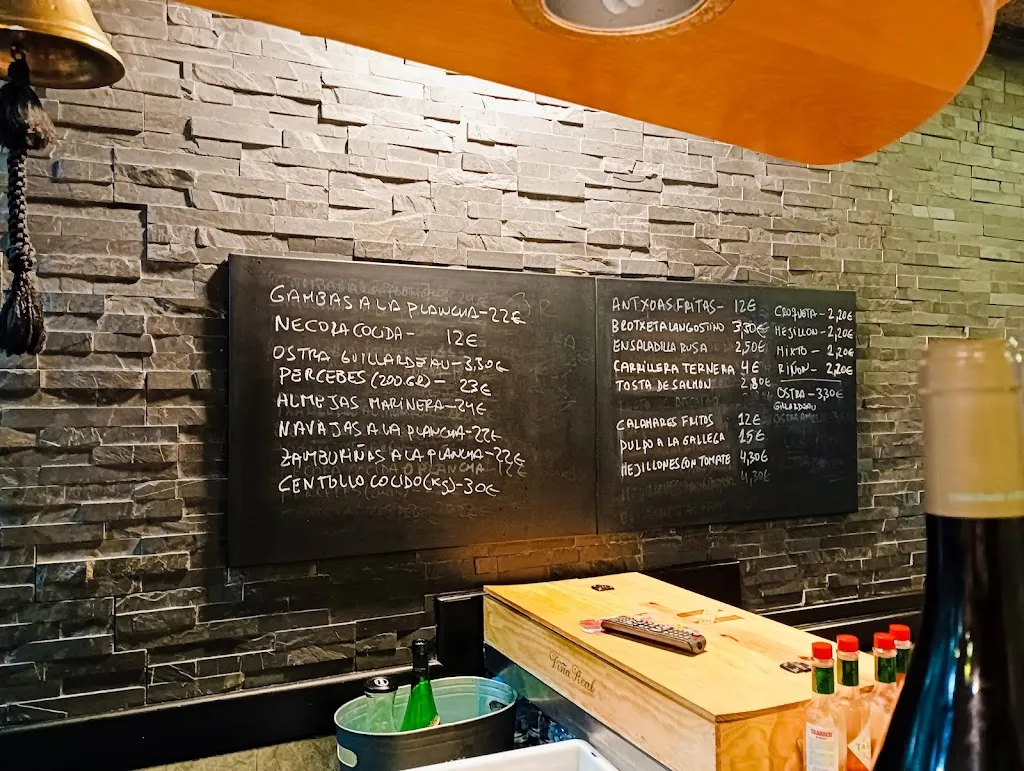 GAMBAS A LA PLANCHA-22€
NECORA COCIDA- 12€
OSTRA GUILLARDEAU-3,30€
PERCEBES (200.GR)- 23€
ALMEJAS MARINERA-24€
NAVAJAS A LA PLANCHA-22€
ZAMBURIÑAS A LA PLANCHA-22€
CENTOLLO COCIDO(KG)-30€
ANTXOAS.FRITAS- 12€
BROTXETA LANGOSTINO 3,30€
ENSALADILLA RUSA 2,50€
CARRILLERA TERNERA 4€
TOSTA DE SALMON 2,80€
CALAMARES FRITOS 12€
PULPO A LA GALLEGA 15€
MEJILLONES CON TOMATE 4,30€
4,30€
CROQUETA - 2,20€
MEJILLON - 2,20€
MIXTO - 2,20€
RIÑON - 2,20€
OSTRA - 3,30€
GILARDEAU
Viña Real
TABASCO